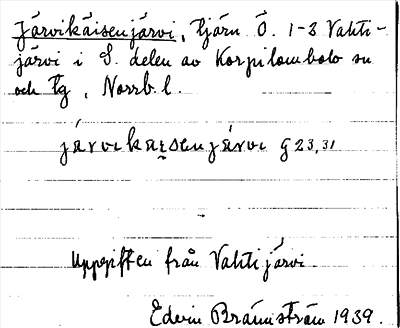 Järvikäisenjärvi, tjärn Ö. 1-3 Vahti-
järvi i S. delen av Korpilombolo sn
och tg, Norrb. l.
järvikaisenjärvi G23,31
Uppgiften från Vahtijärvi.
Edvin Brännström 1939.